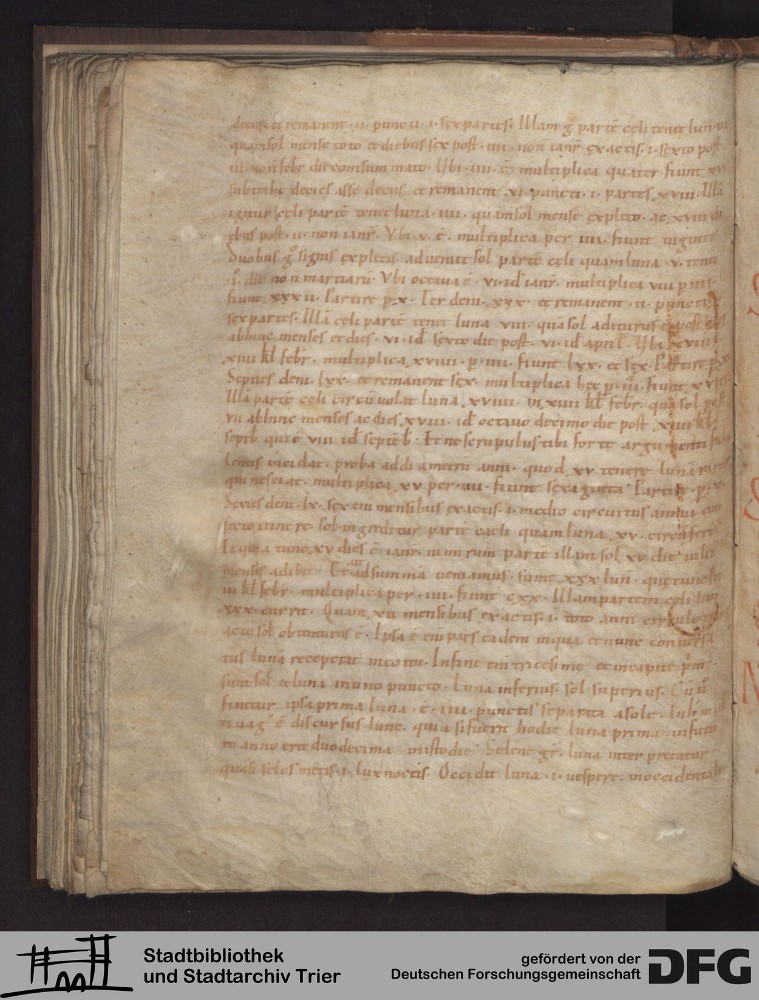 decus. et remanent .ii. puncti .i. sex partes. Illam g̊ partē cęli tenet lun
quam sol mense toto ac diebus sex post .iiii. non ianr̄ exactis .i. sexto post
iii non febr̄ die consummato. Vbi .iiii. ē multiplica quater fiunt xvi
subtrahe decies asse decus et remanent .vi. puncti .i. partes xviii. Illā
igitur cęli partē tenet luna .iiii. quam sol mense expleto ac xviii di
ebus post .ii. non ianr̄. Vbi .v. ē. multiplica per .iiii. fiunt viginti
Duobus g̊ signis expletis. advenit sol partē cęli quam luna .v. tenu
.i. die non martiarū. Vbi octava ē .vi. id ianr̄. multiplica viii p iiii.
fiunt xxxii. Partire p̱ x. Ter deni. xxx. et remanent .ii. puncti
sex partes. Illā cęli partē tenet luna viii. quā sol aditurus ē post
ab hinc menses et dies .vi. id sexto die post .vi. id april̄. Vbi xviiii
xiiii kl̄ febr̄. multiplica xviiii. p̱ .iiii. fiunt lxx. et sex. Partire p̱ x
Septies deni. lxx. et remanent sex. multiplica hęc p̱ .iii. fiunt xviii
Illā partē cęli circūvolat luna xviiii. in xiiii kl̄ febr̄. quā sol post
vii ab hinc menses ac dies xviii. id octavo decimo die post xiiii kl̄
septb̄. qui ē viii id septēb̄. Et ne scrupulus tibi forte argumenti
lentis incidat. proba addi ametrū anni. quod xv tenere lunā
qui nesciat. multiplica xv per .iiii. fiunt sexaginta. Partire p̱ x
Sexies deni. lx. sex eni mensibus exactis .i. medio circuitus annui con
fecto itinere. sol ingreditur partē caeli quam luna .xv. circūfert
Et quia tunc xv dies ē ianr̄. nimirum parte illam sol xv die iulii
mensis adibit. Et ad summā veniamus. sume xxx lun̄. que tunc
iii kl̄ febr̄. multiplica per .iiii. fiunt cxx. Illam partem cęli lun
xxx currit. Quam xii mensibus exactis .i. toto anni circulo
acto sol obtenturus ē. Ipsa ē eni pars eadem in qua et nunc conversa
tus luna receperat in coitu. In fine eni tricesime et incapite prime
sunt sol et luna in uno puncto. Luna inferius. sol superius. Cū
finitur ipsa prima luna. ē .iiii. punctis separata a sole.
ti vag̊ ē discursus lune. quia si fuerit hodie luna prima. in futu
ro anno erit duodecima in isto die. Selene gr̄. luna interpretatur
quasi selos nictis .i. lux noctis. Occidit luna .i. vespere. in occidentali
Stadtbibliothek
und Stadtarchiv Trier
gefördert von der
Deutschen Forschungsgemeinschaft
DFG